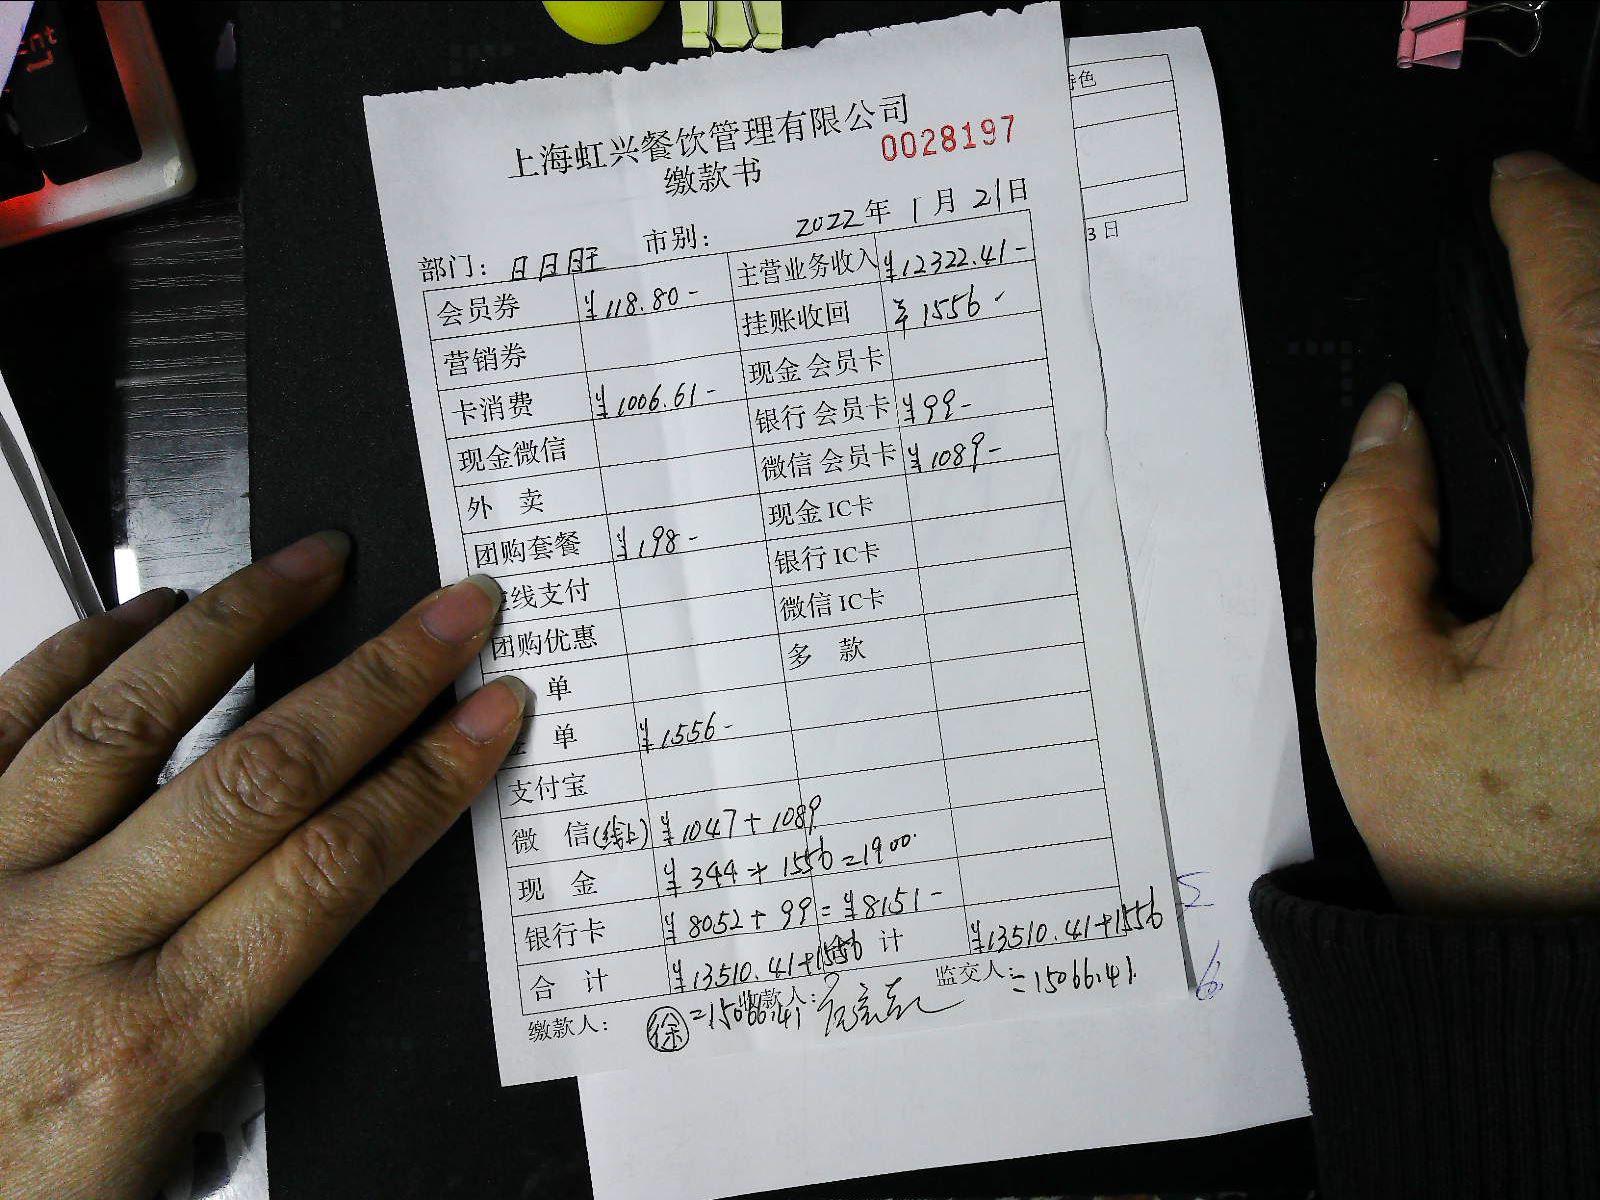 上海虹兴餐饮管理有限公司
缴款书 0028197
部门： 日日旺 市别： 2022年 1月 21日
会员券 ¥118.80- 主营业务收入 ¥12322.41-
营销券 挂账收回 ¥1556-
卡消费 ¥1006.61- 现金 会员卡
现金微信 银行 会员卡 ¥99-
外 卖 微信 会员卡 ¥1089-
团购套餐 ¥198- 现金 IC卡
线支付 银行 IC卡
团购优惠 微信 IC卡
单 多 款
单 ¥1556-
支付宝
微 信(线上) ¥1047+1089
现 金 ¥344+1556=1900
银行卡 ¥8052+99=¥8151-
合 计 ¥13510.41+1556 计 ¥13510.41+1556
缴款人： 徐 =15066.41 款人： 监交人： =15066.41
色
3 日
5
6